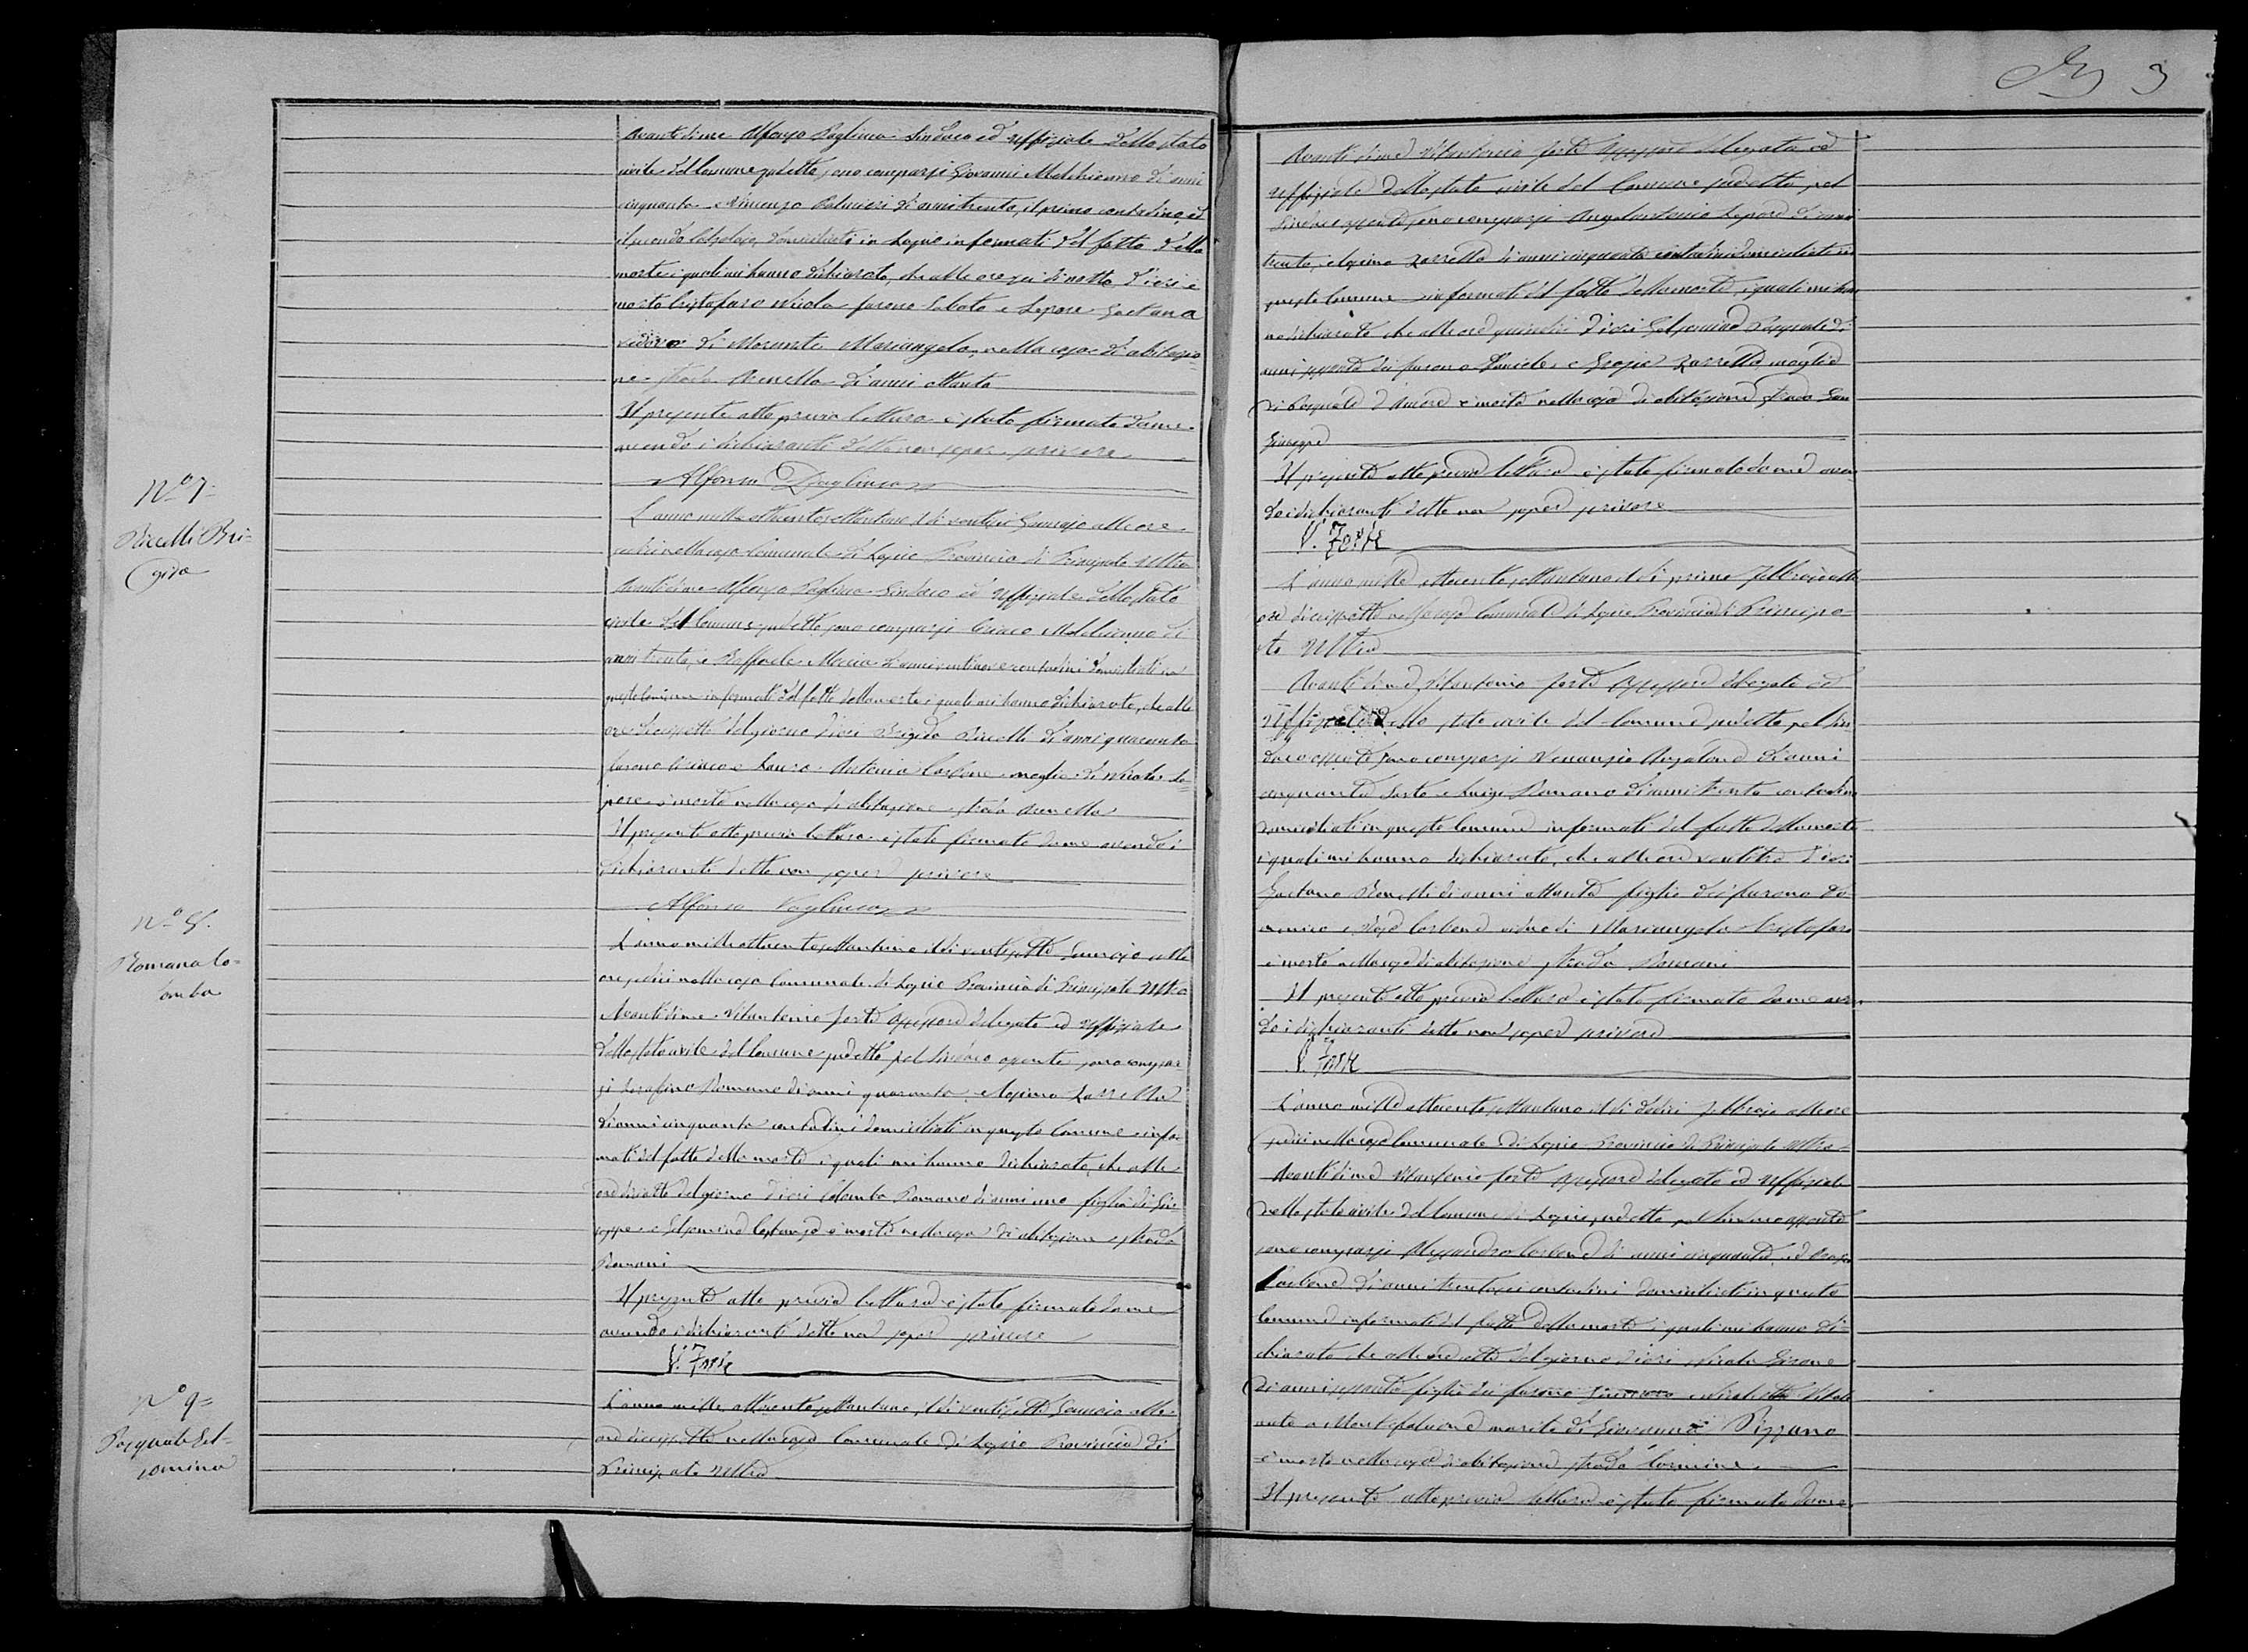 3
Avanti di me Alfonso Pagliuca Sindaco ed Uffiziale dello stato
civile del Comune sudetto, sono comparsi Giovanni Melchionno di anni
cinquanta e Vincenzo di anni trenta, il primo contadino, ed
il secondo Calzolajo, domiciliati in Lapio informati del fatto della
morte i quali mi hanno dichiarato, che alle ore sei di notte d'ieri è
morto Cristofaro Nicola furono Sabato e Lepore Gaetana
vedovo di Morante Mariangela, nella casa di abitazio=
ne strada Arenella di anni ottanta
Il presente atto previa lettura è stato firmato da me
avendo i dichiaranti detto non saper scrivere
Alfonso Pagliuca
Nº 7=
Riccelli Bri=
gida
L'anno mille ottocento settantuno, il dì ventisei Gennajo alle ore
nella casa Comunale di Lapio Provincia di Principato Ultra
Avanti di me Alfonso Pagliuca Sindaco ed Uffiziale dello Stato
civile del Comune sudetto sono comparsi Ciriaco Melchionno di
anni trenta, e Raffaele di anni ventinove contadini domiciliati in
questo Comune informati del fatto della morte i quali mi hanno dichiarato, che alle
ore diecissette del giorno d'ieri Brigida Riccelli di anni quaranta
furono Ciriaco e Laura Antonia Carbone moglie di Nicola Le=
pore è morta nella casa di abitazione strada Arenella
Il presente atto previa lettura è stato firmato da me avendo i
dichiaranti detto non saper scrivere
Alfonso Pagliuca
Nº 8.
Romano Co=
lomba
L'anno mille ottocento settantuno il dì ventisette Gennajo alle
ore sedici nella casa Comunale di Lapio Provincia di Principato Ultra
Avanti di me Vitantonio Forte Assessore delegato ed Uffiziale
dello stato civile del Comune sudetto pel Sindaco assente sono compar=
si Serafino Romano di anni quaranta, e Zarrella
di anni cinquanta contadini domiciliati in questo Comune infor
mati del fatto della morte i quali mi hanno dichiarato, che alle
ore del giorno d'ieri Colomba Romano di anni uno figlia di Giu=
seppe e Gelsomina Costanza è morta nella casa di abitazione strada
Romani
Il presente atto previa lettura è stato firmato da me
avendo i dichiaranti detto non saper scrivere
V. Forte
Nº 9=
Pasquale Gel=
somina
L'anno mille ottocento settantuno, il dì ventisette Gennajo alle
ore diecisette nella casa Comunale di Lapio Provincia di
Principato Ultra
Avanti di me Vitantonio Forte Assessore delegato ed
Uffiziale dello stato civile del Comune sudetto pel
Sindaco assente sono comparsi Angelantonio Lepore di anni
trenta, e Zarrella di anni cinquanta contadini domiciliati in
questo Comune informati del fatto della morte, i quali mi han
no dichiarato che alle ore quindici d'ieri Gelsomina Pasquale di
anni sessanta dei furono Daniele e Grazia Zarrella moglie
di Pasquale d'Amore è morta nella casa di abitazione strada San
Giuseppe
Il presente atto previa lettura è stato firmato da me aven
do i dichiaranti detto non saper scrivere
V. Forte
L'anno mille ottocento settantuno il dì primo Febbrajo alle
ore diecissette nella casa Comunale di Lapio Provincia di Principa=
to Ultra
Avanti di me Vitantonio Forte Assessore delegato ed
Uffiziale dello stato civile del Comune sudetto pel Sin
daco assente sono comparsi Venanzio di anni
cinquanta sarto e Luigi Romano di anni trenta contadino
domiciliati in questo Comune informati del fatto della morte
i quali mi hanno dichiarato, che alle ore ventitre d'ieri
Gaetano di anni ottanta figlio dei furono Do
menico e Carbone vedovo di Mariangela Cristofaro
è morto nella casa di abitazione strada Romani
Il presente atto previa lettura è stato firmato da me aven
do i dichiaranti detto non saper scrivere
V. Forte
L'anno mille ottocento settantuno il dì dodici Febbrajo alle ore
sedici nella casa Comunale di Lapio Provincia di Principato Ultra
Avanti di me Vitantonio Forte Assessore delegato ed Uffiziale
dello stato civile del Comune di Lapio sudetto pel Sindaco assente
sono comparsi Alessandro Carbone di anni cinquanta, ed
Carbone di anni trentasei contadini domiciliati in questo
Comune informati del fatto della morte i quali mi hanno di=
chiarato che alle ore sette del giorno d'ieri Nicola
di anni sessanta figlio dei furono e Nicoletta
nato a Montefalcione marito di Giovanna Pizzano
è morto nella casa di abitazione strada Carmine
Il presente atto previa lettura è stato firmato da me